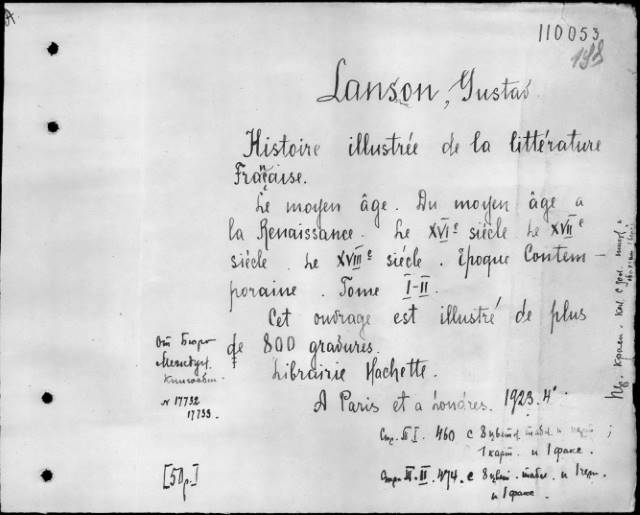 A
110053
188
Lanson, Gustav
Histoire illustrée de la littérature
Française.
Le moyen âge. Du moyen âge a
la Renaissance. Le XVIe siècle Le XVIIe
siécle. Le XVIIIe siécle. Epoque Contem-
poraine. Tome I-II.
Cet ouvrage est illustré de plus
de 800 gravures.
Librairie Hachette.
A Paris et a Londres. 1923. 4°
От Бюро
Межд
Книгообм.
N 17732
17733.
[50р.]
Стр. Т I. 460 с 8 цветн. табл. и
1 карт. и 1 факс.
Стр. Т. II. 474. с 8 цвет. табл. и 1 черн.
и 1 факс.